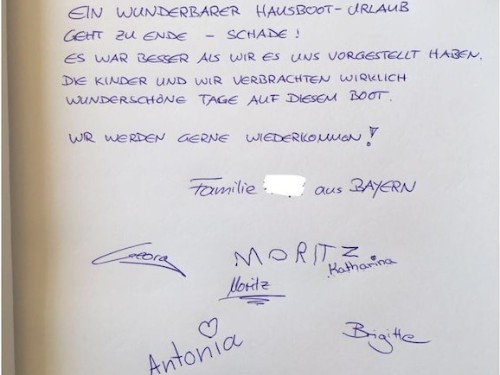 EIN WUNDERBARER HAUSBOOT-URLAUB
GEHT ZU ENDE – SCHADE!
ES WAR BESSER ALS WIR ES UNS VORGESTELLT HABEN.
DIE KINDER UND WIR VERBRACHTEN WIRKLICH
WUNDERSCHÖNE TAGE AUF DIESEM BOOT.
WIR WERDEN GERNE WIEDERKOMMEN!
Familie aus BAYERN
MORITZ
Katharina
Moritz
Antonia
Brigitte